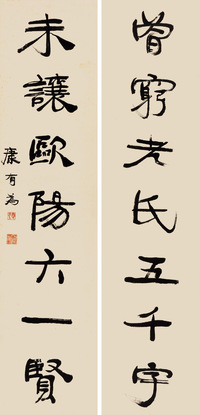 曾窮老氏五千字
未讓歐陽六一賢
康有為